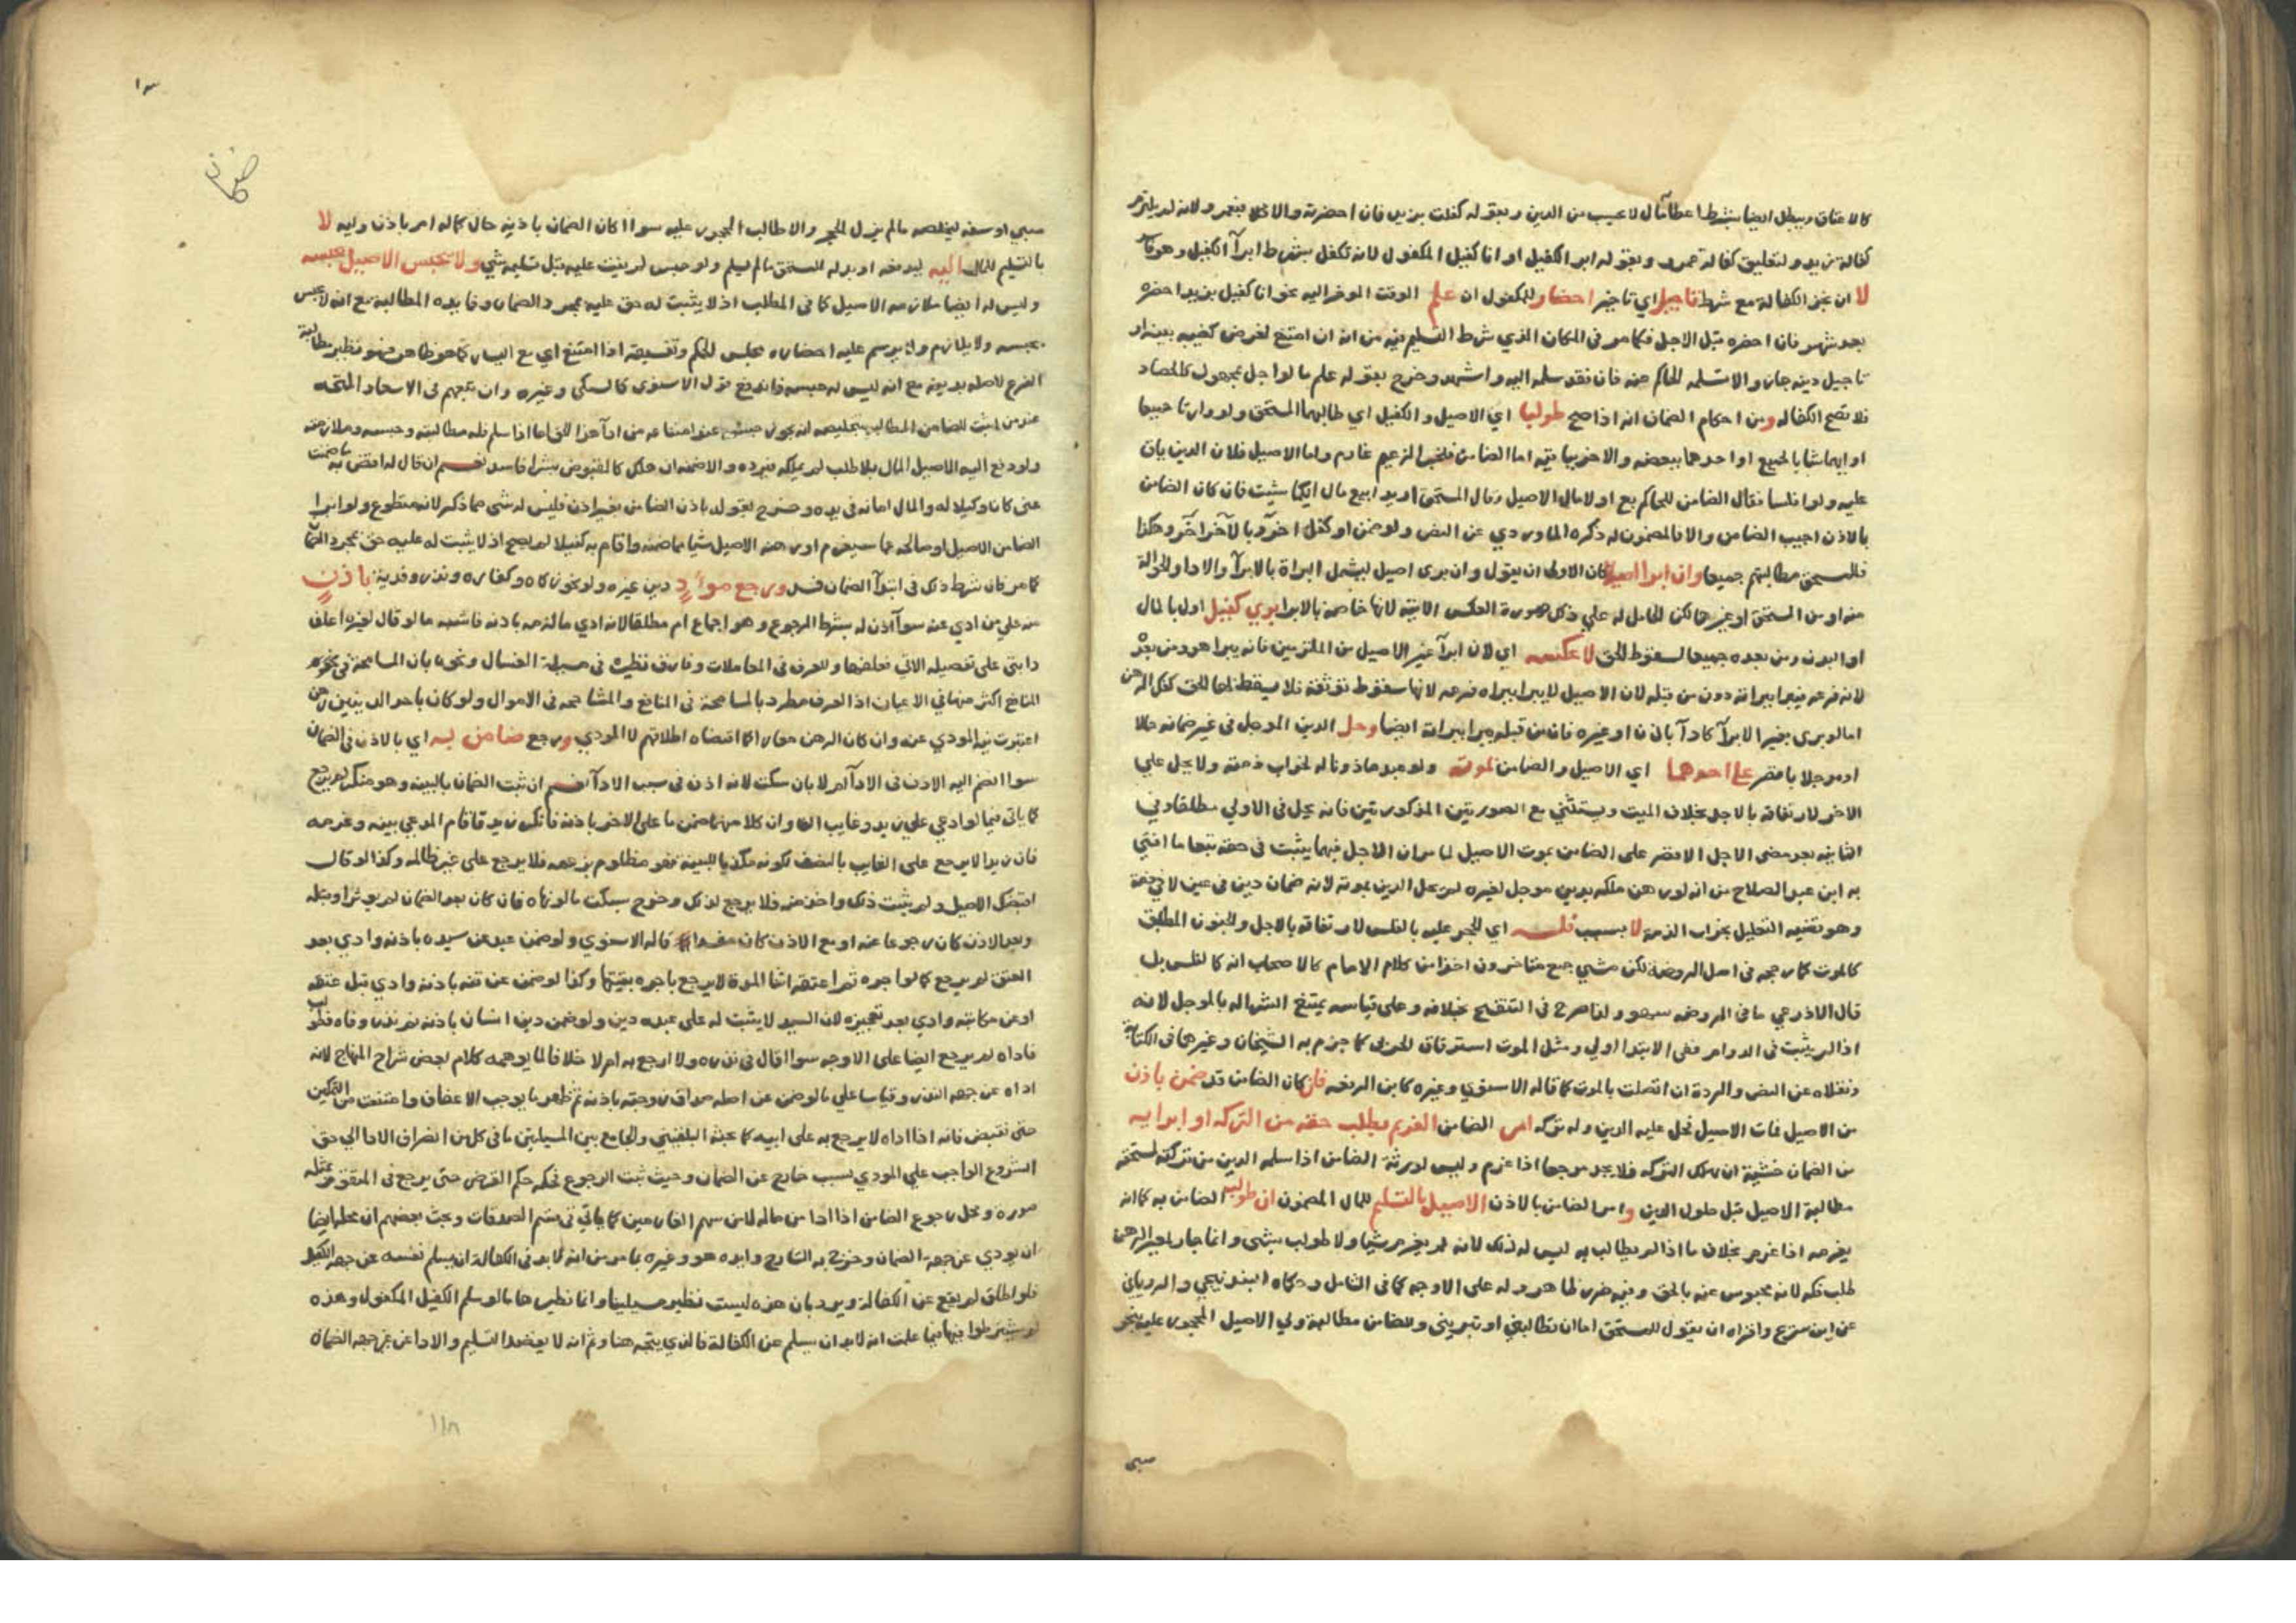 كالاعتاق ويبطل ايضا بشرط اعطا مال لا يحسب من الدين وبقوله كفلت بزيد فان احضرته والا فبعمرو ولانه لم يلتزم
كفالة زيد ولتعليق كفالة عمرو وبقوله ابرا الكفيل او انا كفيل المكفول لانه تكفل بشرط ابرآ الكفيل وهو
لا ان نجز الكفالة مع شرط تاجيل اي تاخير احضار المكفول ان علم الوقت الموخر اليه نحو انا كفيل بزيد احضره
بعد شهر فان احضره قبل الاجل فكما مر في المكان الذي شرط التسليم فيه من انه ان امتنع لغرض كفيبه بينه او
تاجيل دينه جاز والا تسلمه الحاكم عنه فان فقد سلمه اليه واشهد وخرج بقوله علم ما لو اجل بمجهول كالحصاد
فلا تصح الكفاله ومن احكام الضمان انه اذا صح طولبا اي الاصيل والكفيل اي طالبهما المستحق ولو وارثا جميعا
او ايهما شا بالجميع او احدهما ببعضه والاخر بباقيه اما الضامن فلخبر الزعيم غارم واما الاصيل فلان الدين باق
عليه ولو افلسا فقال الضامن للحاكم بع اولا مال الاصيل وقال المستحق اريد ابيع مال ايكما شيت فان كان الضامن
بالاذن اجيب الضامن والا فالمضمون له ذكره الماوردي عن النص ولو ضمن او كفل اخر وبالاخر اخر وهكذا
فللمستحق مطالبتهم جميعا وان ابرا اصيل كان الاولى ان يقول وان بري اصيل ليشمل البراة بالابرآ والادا والحوالة
منه او من المستحق او غيرهما لكن الحامل له علي ذكر صورة العكس الاتية لانها خاصة بالابرا بري كفيل اول بالمال
او البدن ومن بعده جميعا لسقوط الحق لا عكسه اي لان ابرآ غير الاصيل من الملتزمين فانه يبرا هو ومن بعده
لانه فرعه فيبرا ببراته دون من قبله لان الاصيل لا يبرا ببراة فرعه لانها سقوط توثقة فلا يسقط بها الحق كفك الرهن
اما لو بري بغير الابرآ كادآ باذن او غيره فان من قبله يبرا ببراته ايضا وحل الدين الموجل في غير ضمانه حالا
او موجلا باقصر علي احدهما اي الاصيل والضامن بموته ولو عبدا ماذونا له لخراب ذمته ولا يحل علي
الاخر لارتفاقه بالاجل بخلاف الميت ويستثني مع الصورتين المذكورتين فانه يحل في الاولي مطلقا وفي
الثانيه بعد مضي الاجل الاقصر على الضامن بموت الاصيل لما مر ان الاجل فيهما يثبت في حقه تبعا ما افتي
به ابن عبد الصلاح من انه لو رهن ملكه بدين موجل لغيره لم يحل الدين بموته لانه ضمان دين في عين لا في ذمة
وهو تقضيه التعليل بخراب الذمة لا بسبب فلسه اي الحجر عليه بالفلس لارتفاقه بالاجل والجنون المطبق
كالموت كما رجحه في اصل الروضة لكن مشي جمع متاخرون اخذا من كلام الامام كالاصحاب انه كالفلس بل
قال الاذرعي ما في الروضة سهو ولذا صرح في التنقيح بخلافه وعلي قياسه يمتنع الشرا له بالموجل لانه
اذا لم يثبت في الدوام ففي الابتدا اولي ومثل الموت استرقاق الحربي كما جزم به الشيخان وغيرهما في الكتابة
ونقلاه عن النص والردة ان اتصلت بالموت كما قاله الاسنوي وغيره كابن الرفعه فان كان الضامن قد ضمن باذن
من الاصيل فمات الاصيل فحل عليه الدين وله تركه امر الضامن الغريم بطلب حقه من التركه او ابرايه
من الضمان خشية ان تهلك التركه فلا يجد مرجعا اذا غرم وليس لورثة الضامن اذا سلمه الدين من تركته لمستحقه
مطالبة الاصيل قبل حلول الدين وامر الضامن بالاذن الاصيل بالتسليم للمال المضمون ان طولب الضامن به كما انه
يغرمه اذا غرم بخلاف ما اذا لم يطالب به ليس له ذلك لانه لم يغرم شيا ولا طولب بشي وانما جاز لمعير الرهن
طلب فكه لانه محبوس عنه بالحق وفيه ضرر ظاهر وله على الاوجه كما في الشامل وحكاه البندنيجي والروياني
عن ابن سريج واقراه ان يقول للمستحق اما ان تطالبني او تبريني وللضامن مطالبة ولي الاصيل المحجور عليه بنحو
صبي
ضمان
صبي او سفه ليخلصه ما لم يزل الحجر والا طالب المحجور عليه سوا اكان الضمان باذنه حال كماله ام باذن وليه لا
بالتسليم للمال اليه ليدفعه او بدله للمستحق ما لم يسلم ولو حبس لم يثبت عليه قبل تسليمه شي ولا يحبس الاصيل بحبسه
وليس له ايضا ملازمه الاصيل كما في المطلب اذ لا يثبت له حق عليه بمجرد الضمان وفايده المطالبة مع انه لا يحبس
بحبسه ولا يلازم ولا يرسم عليه احضاره مجلس الحكم وتفسيقه اذا امتنع اي مع اليسار كما هو ظاهر فهو نظير مطالبة
الفرع لاصله بدينه مع انه ليس له حبسه فاندفع قول الاسنوي كالسبكي وغيره وان تبعهم في الاسعاد المتجه
عند من اثبت للضامن المطالبه بتخليصه انه يجوز حبسه عند امتناعه من ادآ هذا الحق اما اذا سلم فله مطالبته وحبسه وملازمته
ولو دفع اليه الاصيل المال بلا طلب لم يملكه فيرده والا ضمنه ان هلك كالمقبوض بشرا فاسد نعم ان قال له اقض به ما ضمنت
عني كان وكيلا له والمال امانه في يده وخرج بقوله باذن الضامن بغير اذن فليس له شي مما ذكر لانه متطوع ولو ابرا
الضامن الاصيل او صالحه عما سيغرم او رهنه الاصيل شيا بما ضمنه واقام به كفيلا لم يصح اذ لا يثبت له عليه حق بمجرد الضمان
كما مر فان شرط ذلك في ابتدآ الضمان فسد ورجع مودٍ دين غيره ولو نحو زكاه وكفاره ونذر وفدية باذنٍ
منه علي من ادي عنه سوآ اذن له بشرط الرجوع وهو اجماع ام مطلقا لانه ادي ما لزمه باذنه فاشبه ما لو قال لغيره اعلف
دابتي على تفصيله الاتي فعلفها وللعرف في المعاملات وفارق نظيره في مسيلة الغسال ونحوه بان المسامحة في نحو
المنافع اكثر منها في الاعيان اذ العرف مطرد بالمسامحة في المنافع والمشاححه في الاموال ولو كان باحد الدينين رهن
اعتبرت نية المودي عنه وان كان الرهن معارا كما اقتضاه اطلاقهم لا المودي ورجع ضامن به اي بالاذن في الضمان
سوا انضم اليه الاذن في الادآ ام لا بان سكت لانه اذن في سبب الادآ نعم ان ثبت الضمان بالبينه وهو منكر لم يرجع
كما ياتي فيما لو ادعي علي زيد وغايب الفا وان كلا منهما ضمن ما على الاخر باذنه فانكر زيد فاقام المدعي بينه وغرمه
فان زيدا لا يرجع على الغايب بالنصف لكونه مكذبا للبينه فهو مظلوم بزعمه فلا يرجع علي غير ظالمه وكذا لو قال
اقبضك الاصيل ولم يثبت ذلك واخذ منه فلا يرجع لذلك وخرج بسكت ما لو نهاه فان كان بعد الضمان لم يوثر او قبله
وبعد الاذن كان رجوعا عنه او مع الاذن كان مفسدا له قاله الاسنوي ولو ضمن عبد عن سيده باذنه وادي بعد
العتق لم يرجع كما لو اجره ثم اعتقه اثنا المدة لا يرجع باجره بقيتها وكذا لو ضمن عن قنه باذنه وادي قبل عتقه
او عن مكاتبه وادي بعد تعجيزه لان السيد لا يثبت له على عبده دين ولو ضمن دين انسان باذنه ثم نذر وفاه
فاداه لم يرجع ايضا على الاوجه سوا اقال في نذره ولا ارجع به ام لا خلافا لما يوهمه كلام بعض شراح المنهاج لانه
اداه عن جهه النذر وقياسا علي ما لو ضمن عن اصله صداق زوجته باذنه ثم ظهر ما يوجب الاعفاف وامتنعت من التمكين
حتى تقبض فانه اذا اداه لا يرجع به على ابيه كما بحثه البلقيني والجامع بين المسيلتين ما في كل من انصراف الادا الي حق
الشروع الواجب علي المودي لسبب خارج عن الضمان وحيث ثبت الرجوع فحكمه حكم القرض حتى يرجع في المتقوم بمثله
صوره ومحل رجوع الضامن اذا ادا من ماله لا من سهم الغارمين كما ياتي في قسم الصدقات وبحث بعضهم ان محله ايضا
ان يودي عن جهه الضمان وخرج به الشارح وايده هو وغيره بما مر من انه لا بد في الكفالة ان يسلم نفسه عن جهه الكفيل
فلو اطلق لم يقع عن الكفالة ويرد بان هذه ليست نظير مسيلتنا وانما نظيرها ما لو سلم الكفيل المكفول وهذه
لم يشترطوا فيها فيما علمت انه لا بد ان يسلم عن الكفالة فالذي يتجه هنا وثم انه لا يقصد التسليم والادا عن غير جهه الضمان
١١٨